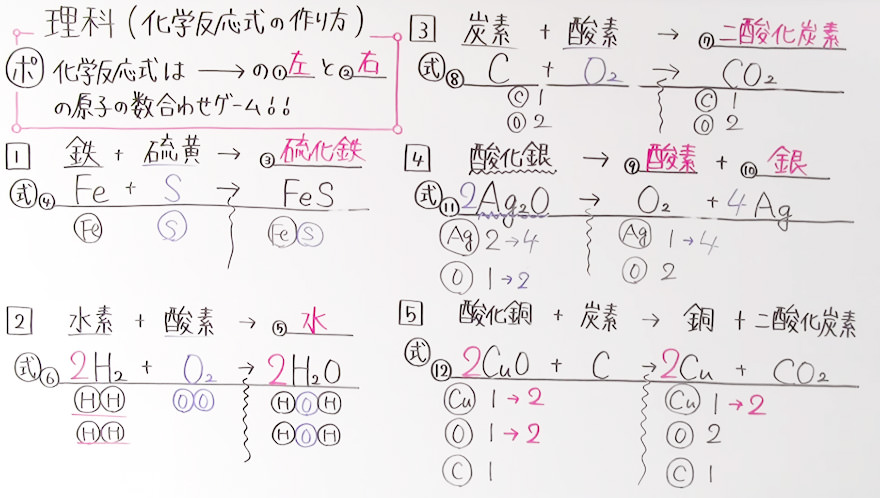 理科(化学反応式の作り方)
ポ 化学反応式は → の①左と②右
の原子の数合わせゲーム!!
1 鉄 + 硫黄 → ③硫化鉄
式④ Fe + S → FeS
Fe S FeS
2 水素 + 酸素 → ⑤水
式⑥ 2H₂ + O₂ → 2H₂O
HH OO HOH
HH HOH
3 炭素 + 酸素 → ⑦二酸化炭素
式⑧ C + O₂ → CO₂
C 1 C 1
O 2 O 2
4 酸化銀 → ⑨酸素 + ⑩銀
式⑪ 2Ag₂O → O₂ + 4Ag
Ag 2→4 Ag 1→4
O 1→2 O 2
5 酸化銅 + 炭素 → 銅 + 二酸化炭素
式⑫ 2CuO + C → 2Cu + CO₂
Cu 1→2 Cu 1→2
O 1→2 O 2
C 1 C 1